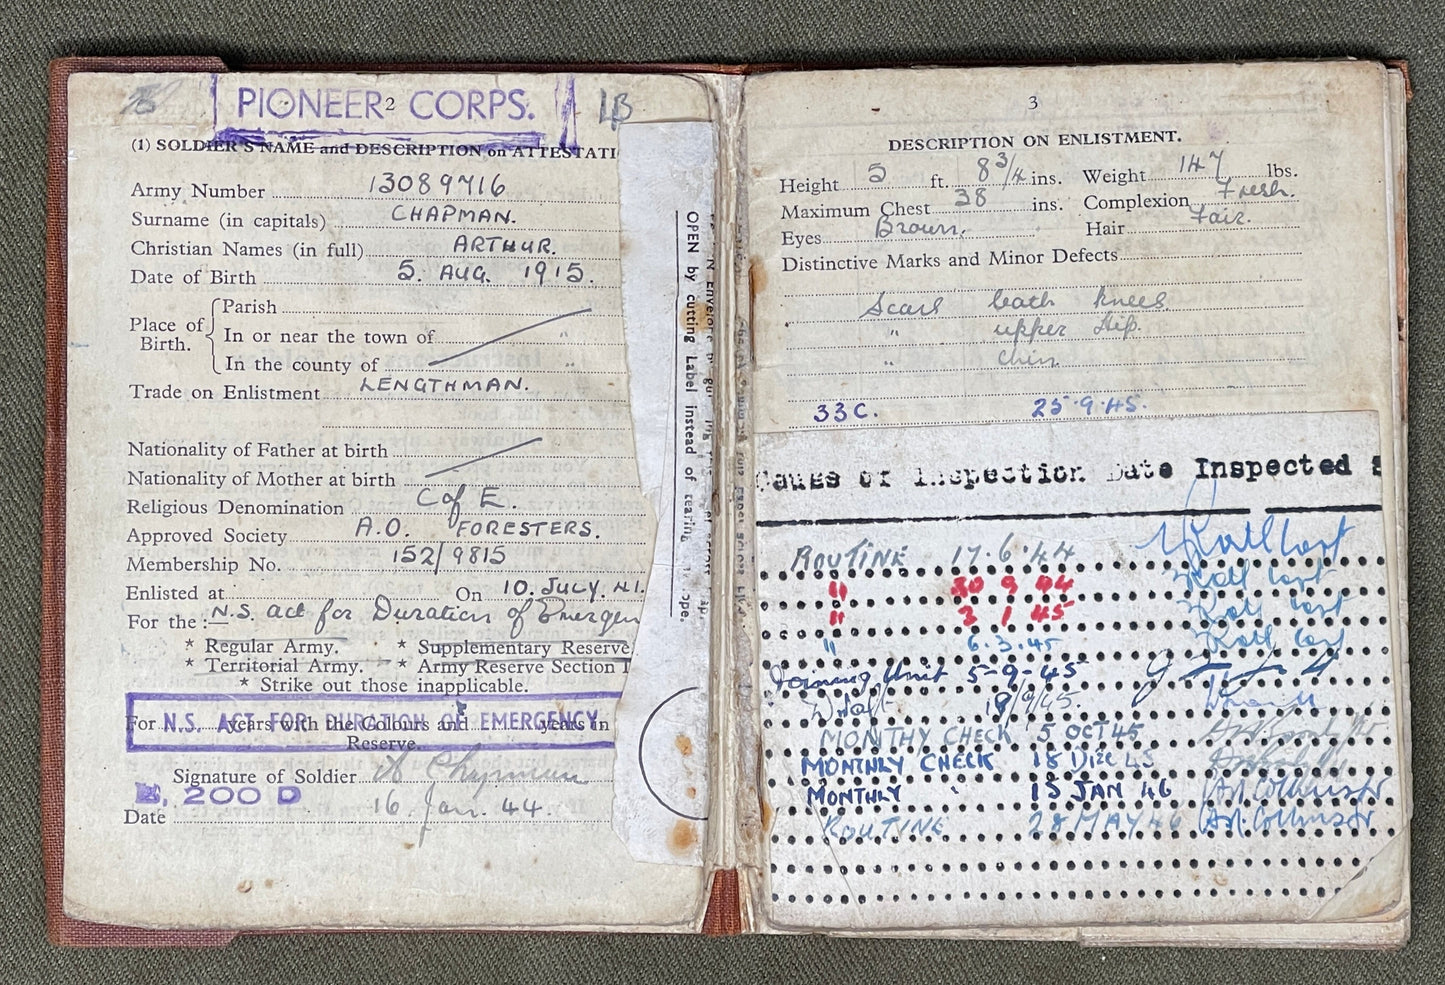 PIONEER CORPS.
2
(1) SOLDIER'S NAME and DESCRIPTION on ATTESTATI
Army Number 13089716
Surname (in capitals) CHAPMAN.
Christian Names (in full) ARTHUR.
Date of Birth 5. AUG. 1915.
Place of Birth.
Parish
In or near the town of "
In the county of "
Trade on Enlistment LENGTHMAN.
Nationality of Father at birth
Nationality of Mother at birth
Religious Denomination C of E.
Approved Society A.O. FORESTERS.
Membership No. 152/9815
Enlisted at On 10. JULY. 41.
For the :- N.S. act for Duration of Emergen
* Regular Army. * Supplementary Reserve.
* Territorial Army. * Army Reserve Section
* Strike out those inapplicable.
For years with the Colours and years in
Reserve.
N.S. ACT FOR DURATION OF EMERGENCY.
Signature of Soldier A Chapman
200 D
Date 16 Jan. 44.
OPEN by cutting Label instead of tearing
3
DESCRIPTION ON ENLISTMENT.
Height 5 ft. 8 3/4 ins. Weight 147 lbs.
Maximum Chest 38 ins. Complexion Fresh.
Eyes Brown. Hair Fair.
Distinctive Marks and Minor Defects
Scars both knees.
" upper lip.
" chin
33C. 25.9.45.
Cause of Inspection Date Inspected
ROUTINE 17.6.44
" 30 9 44
" 3 1 45
" 6.3.45
Joining Unit 5-9-45
Draft 18/9/45.
MONTHY CHECK 5 OCT 45
MONTHLY CHECK 18 DEC 45
MONTHLY " 15 JAN 46
ROUTINE 28 MAY 46